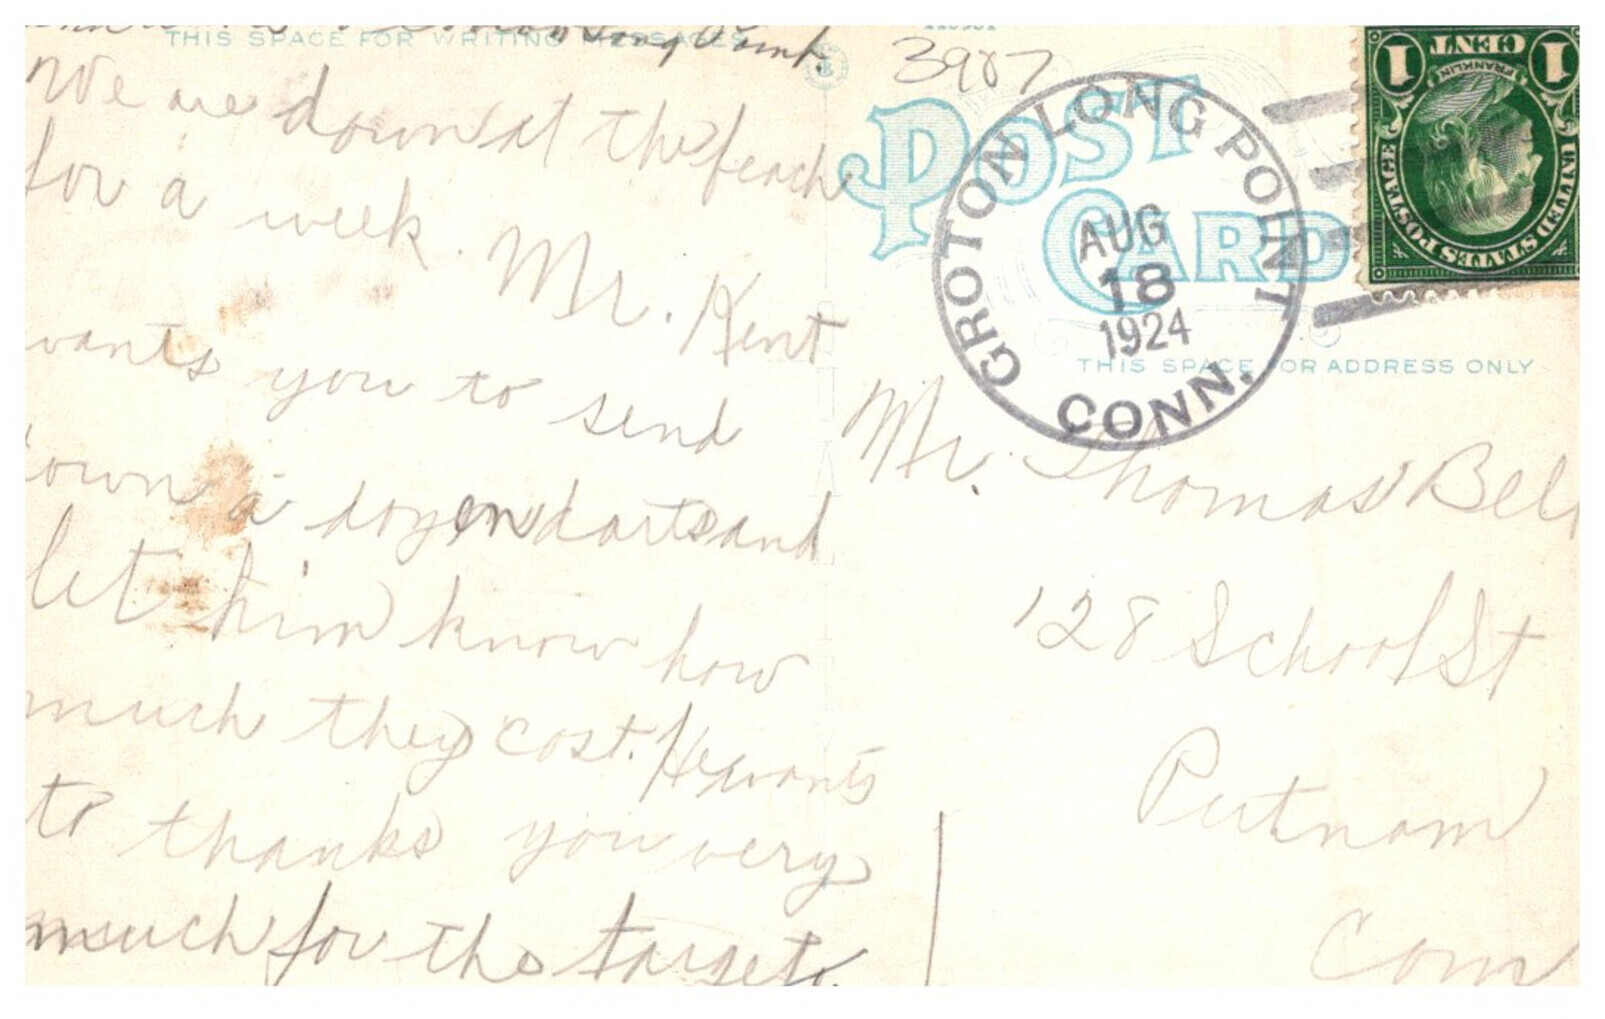 THIS SPACE FOR WRITING MESSAGES
We are down at the beach
for a week. Mr. Kent
wants you to send
down a dozen darts and
let him know how
much they cost. He wants
to thanks you very
much for the target.
3987
POST CARD
GROTON LONG POINT
AUG
18
1924
CONN.
1 CENT 1
FRANKLIN
UNITED STATES POSTAGE
THIS SPACE FOR ADDRESS ONLY
Mr. Thomas Bell
128 School St
Putnam
Conn